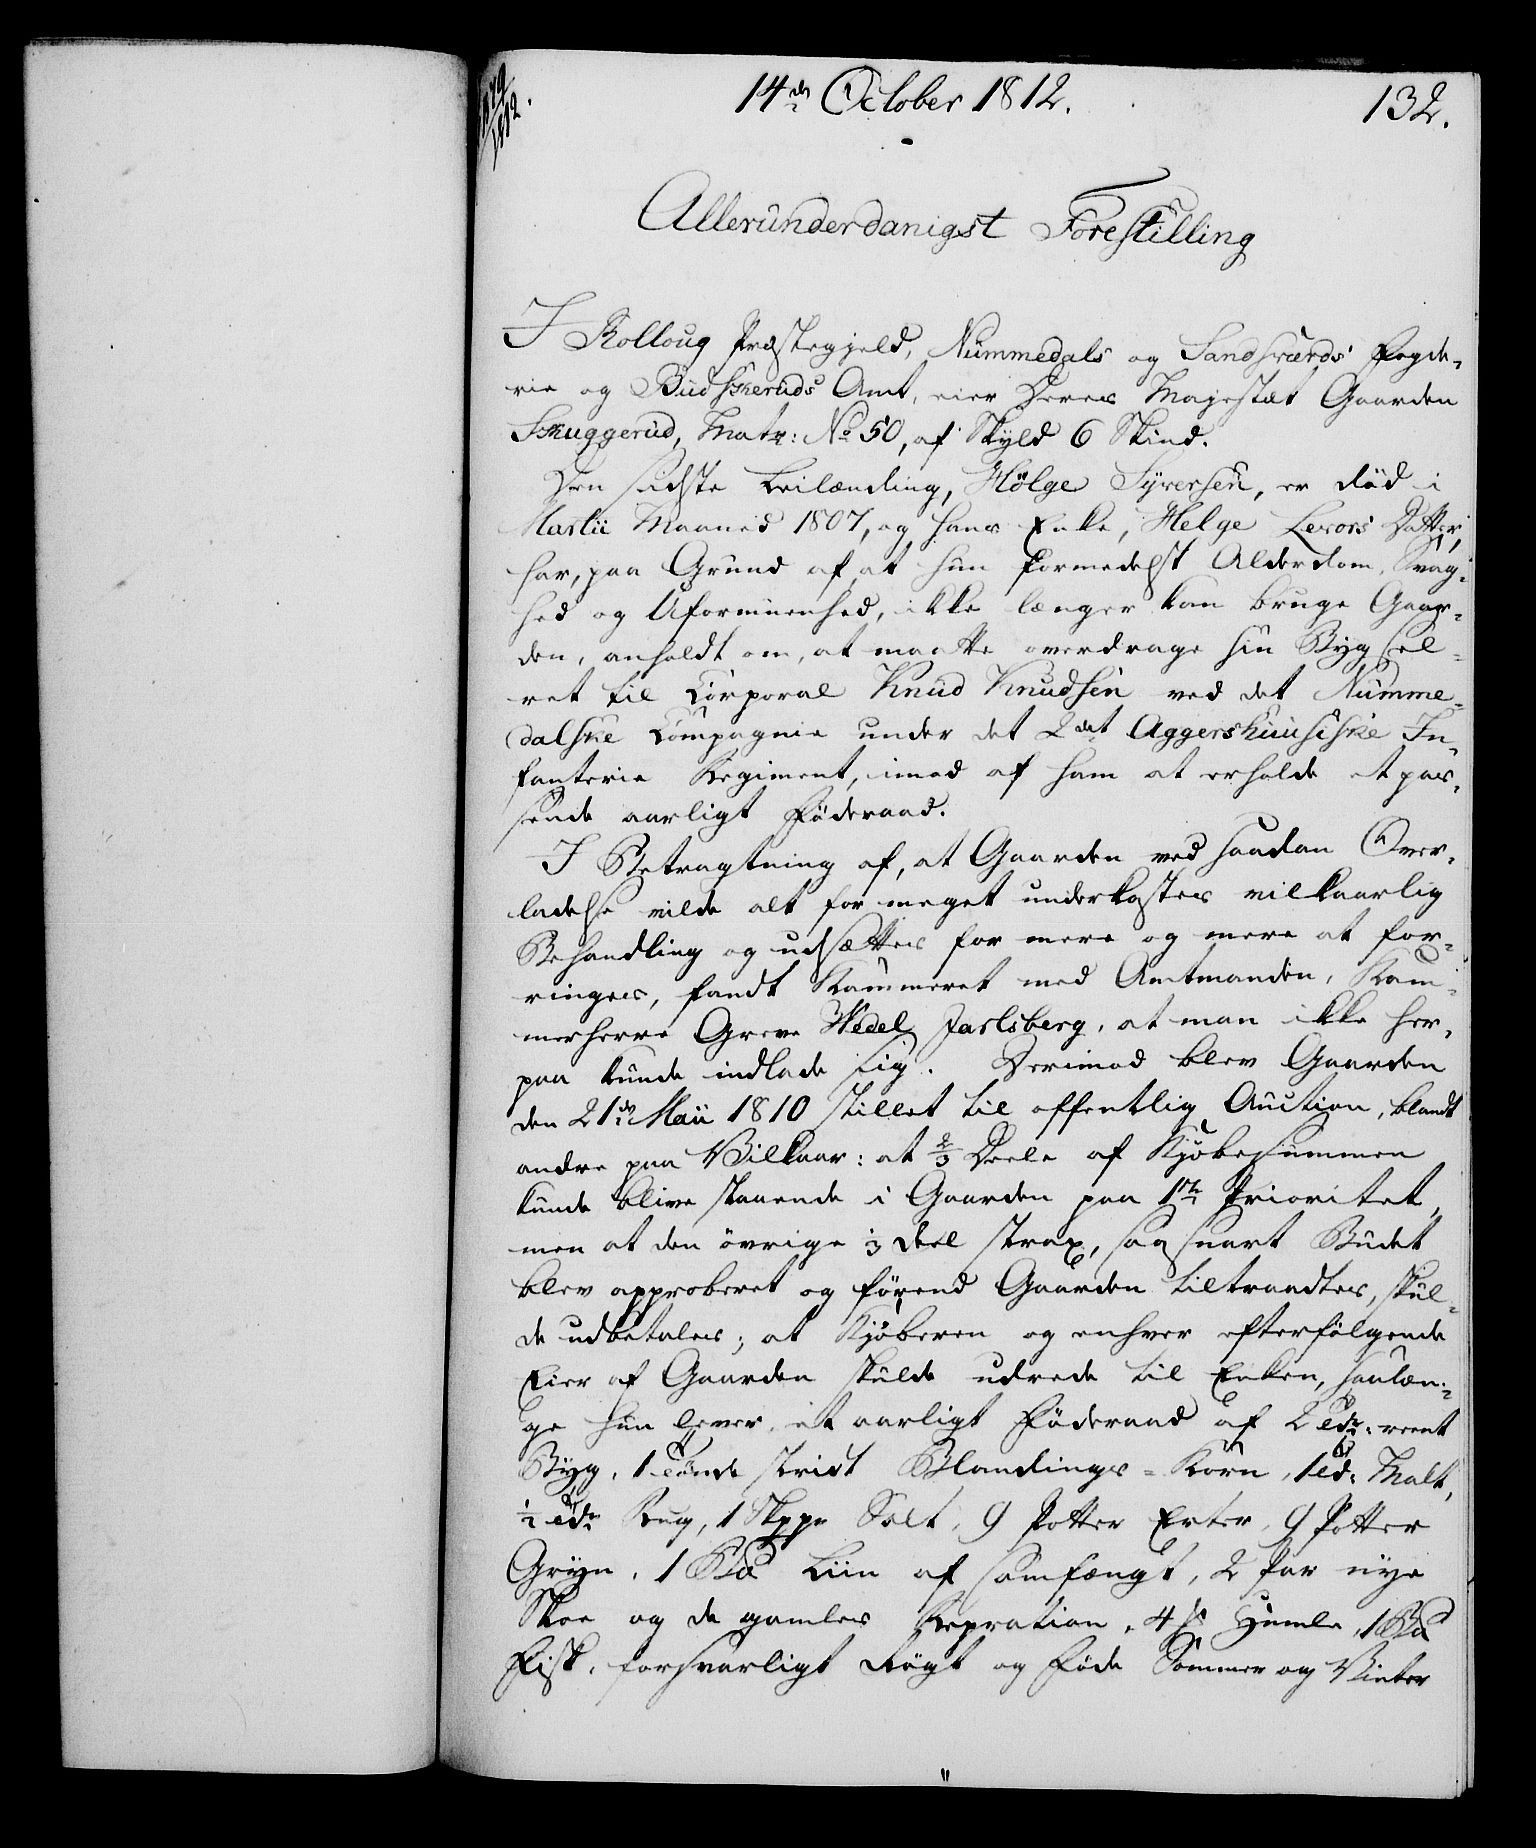 14de October 1812.
132.
1879/1812.
Allerunderdanigst Forestilling
I Rolloug Præstegjeld, Nummedals og Sandsværds Fogde-
rie og Budskeruds Amt, eier Deres Majestæt Gaarden
Skuggerud, Matr: No 50, af Skyld 6 Skind.
Den sidste Leilænding, Hölge Syversen, er död i
Martii Maaned 1807, og hans Enke, Helge Levors Datter,
har, paa Grund af, at hun formedelst Alderdom, Svag-
hed og Uformuenhed, ikke længer kan bruge Gaar-
den, anholdt om, at maatte overdrage sin Bygsel-
ret til Corporal Knud Knudsen ved det Numme-
dalske Compagnie under det 2det Aggershuusiske In-
fanterie Regiment, imod af ham at erholde et pas-
sende aarligt Föderaad.
I Betragtning af, at Gaarden ved saadan Over-
ladelse vilde alt for meget underkastes vilkaarlig
Behandling og udsættes for mere og mere at for-
ringes, fandt Kammeret med Amtmanden, Kam-
merherre Greve Wedel Jarlsberg, at man ikke her-
paa kunde indlade sig. Derimod blev Gaarden
den 21de Maii 1810 stillet til offentlig Auction, blandt
andre paa Vilkaar: at 2/3 Deele af Kjöbesummen
kunde blive staaende i Gaarden paa 1ste Prioritet,
men at den övrige 1/3 Deel strax, saasnart Budet
blev approberet og förend Gaarden tiltraadtes, skul-
de udbetales; at Kjöberen og enhver efterfölgende
Eier af Gaarden skulde udrede til Enken, saalæn-
ge hun lever, et aarligt Föderaad af 2 Tdr: reent
Byg, 1 Tönde stridt Blandings-Korn, 1 Td: Malt,
1/2 Tde Rug, 1 Skppe Salt, 9 Potter Erter, 9 Potter
Gryn, 1 Bd Liin af samfængt, 2 Par nye
Skoe og de gamles Repration, 4 Humle, 1 Bd
Fisk, forsvarligt Rögt og Föde Sommer og Vinter